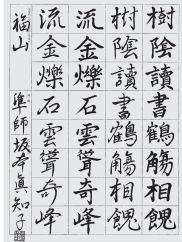 樹陰讀書鶴觴相餽
樹陰讀書鶴觴相餽
流金爍石雲聳奇峰
流金爍石雲聳奇峰
福山 準師 坂本真知子